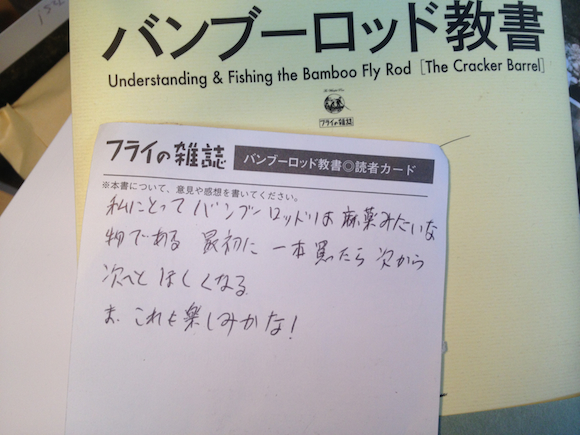 バンブーロッド教書
Understanding & Fishing the Bamboo Fly Rod [The Cracker Barrel]
フライの雑誌
フライの雑誌 バンブーロッド教書◎読者カード
※本書について、意見や感想を書いてください。
私にとって バンブーロッドは 麻薬みたいな
物である 最初に 一本買ったら 次から
次へと ほしくなる
ま、これも楽しみかな!